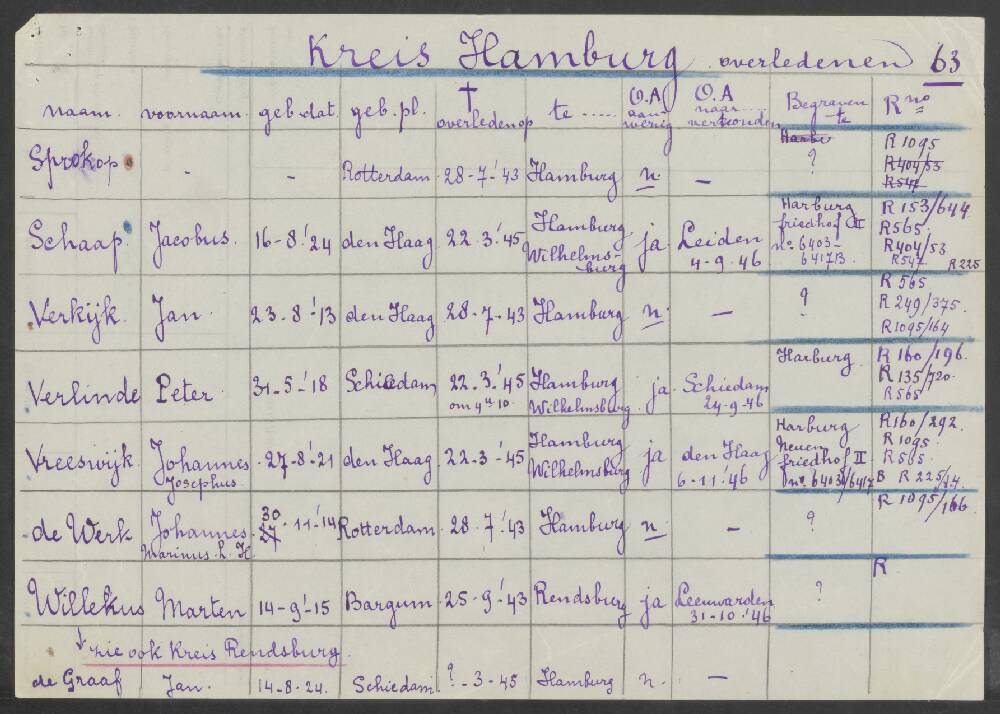 Kreis Hamburg overledenen 63
naam. voornaam. geb. dat. geb. pl. † overleden op te ..... O.A. aanwezig O.A naar..... verzonden Begraven te R no
Sprokop - - Rotterdam 28-7-'43 Hamburg n. - Harb ? R 1095 R404/53 R547
Schaap. Jacobus. 16-8-'24 den Haag 22.3.'45 Hamburg Wilhelmsburg ja Leiden 4-9-'46 Harburg friedhof II no. 6403-6417B. R 153/644 R565. R404/53 R547 R225
Verkijk. Jan. 23-8-'13 den Haag 28-7-'43 Hamburg n. - ? R 565 R 249/375. R1095/164
Verlinde Peter 31-5-'18 Schiedam 22.3.'45 om 4 u 10. Hamburg Wilhelmsburg. ja. Schiedam 24-9-'46 Harburg. R 160/196. R 135/720. R 565
Vreeswijk. Johannes Josephus. 27-8-'21 den Haag 22-3-'45 Hamburg Wilhelmsburg ja den Haag 6-11-'46 Harburg neuen friedhof II no. 6403/6417 B R160/292. R1095. R565. R 225/14.
de Werk Johannes Marinus. L. H. 30 27-11-'14 Rotterdam 28-7-'43 Hamburg n. - ? R 1095/166
Willekus Marten 14-9-'15 Bargum. 25-9-'43 Rendsburg ja Leeuwarden 31-10-'46 ? R
↓ zie ook Kreis Rendsburg.
de Graaf Jan. 14-8-24. Schiedam. ?-3-45 Hamburg n. -